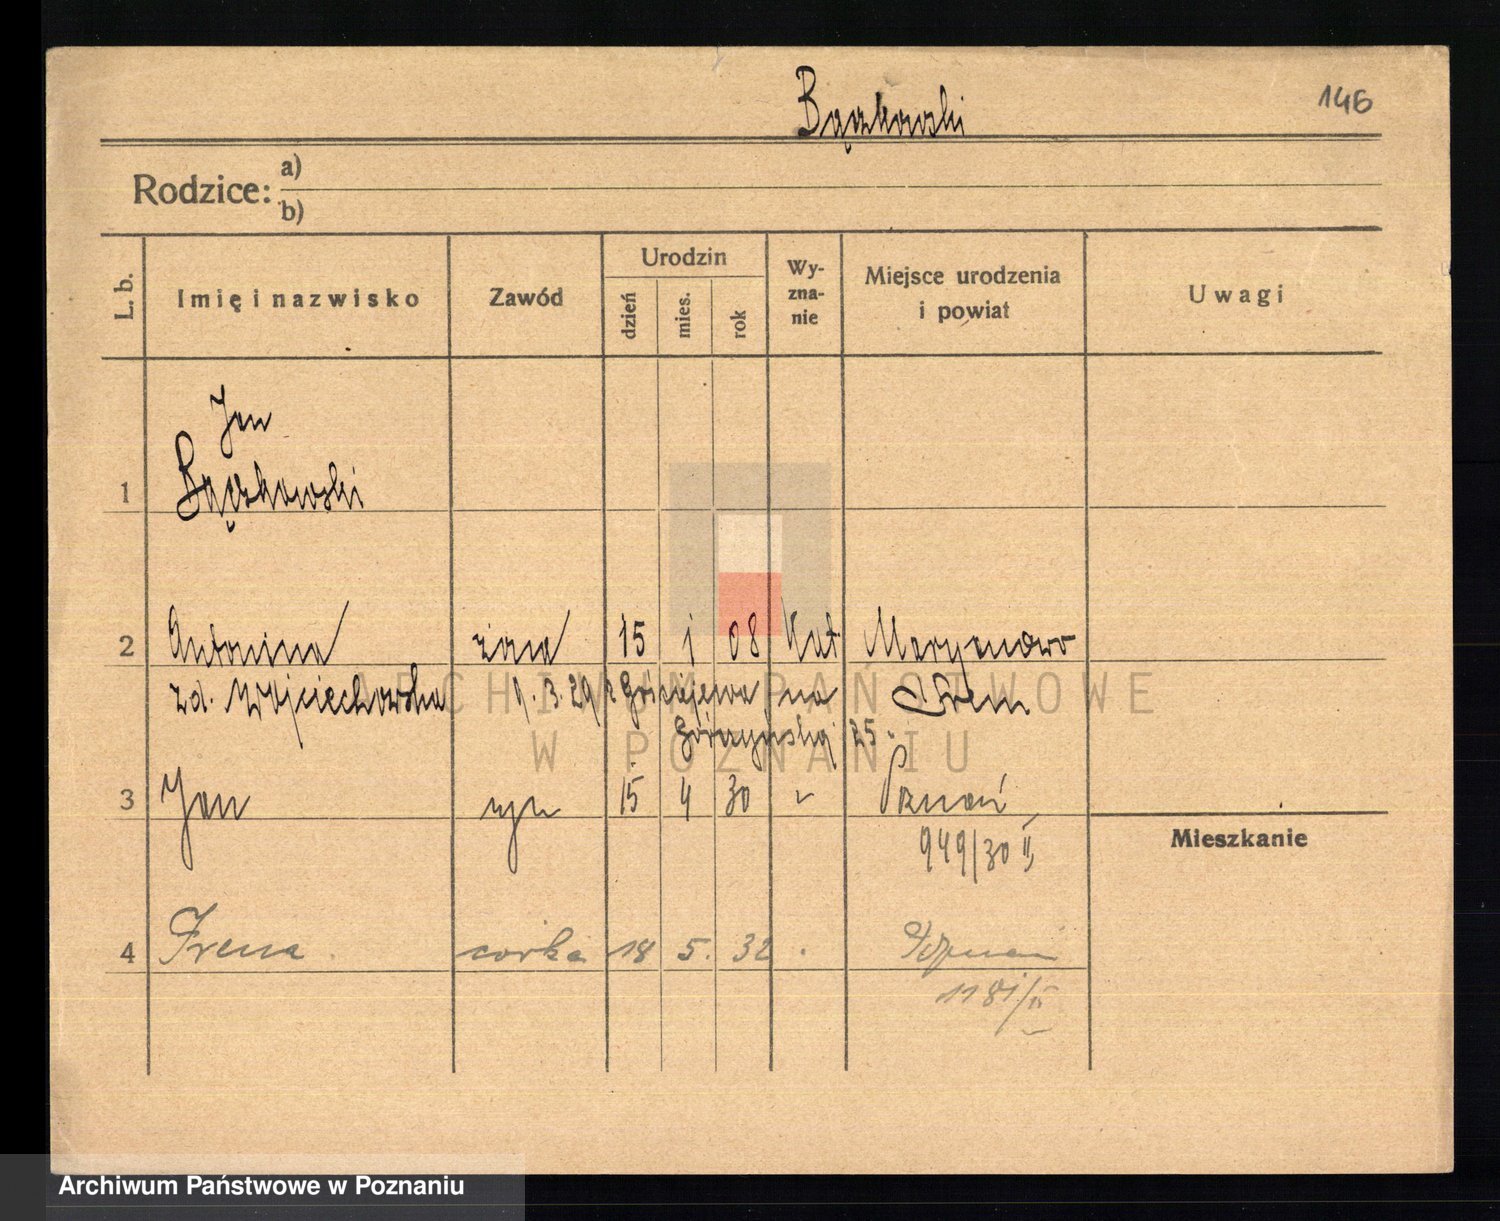 Bączkowski
146
Rodzice: a)
b)
L. b.
Imię i nazwisko
Zawód
Urodzin
dzień
mies.
rok
Wy-
zna-
nie
Miejsce urodzenia
i powiat
Uwagi
1 Jan
Bączkowski
2 Antonina żona 15 1 08 Kat Maryanowo
zd. Wojciechowska 1.3.29 z na Śrem
Górczyńską 25.
3 Jan syn 15 4 30 Poznań
949/30 II
Mieszkanie
4 Irena córka 18 5. 32 Poznań
1181/II
ARCHIWUM PAŃSTWOWE
W POZNANIU
Archiwum Państwowe w Poznaniu